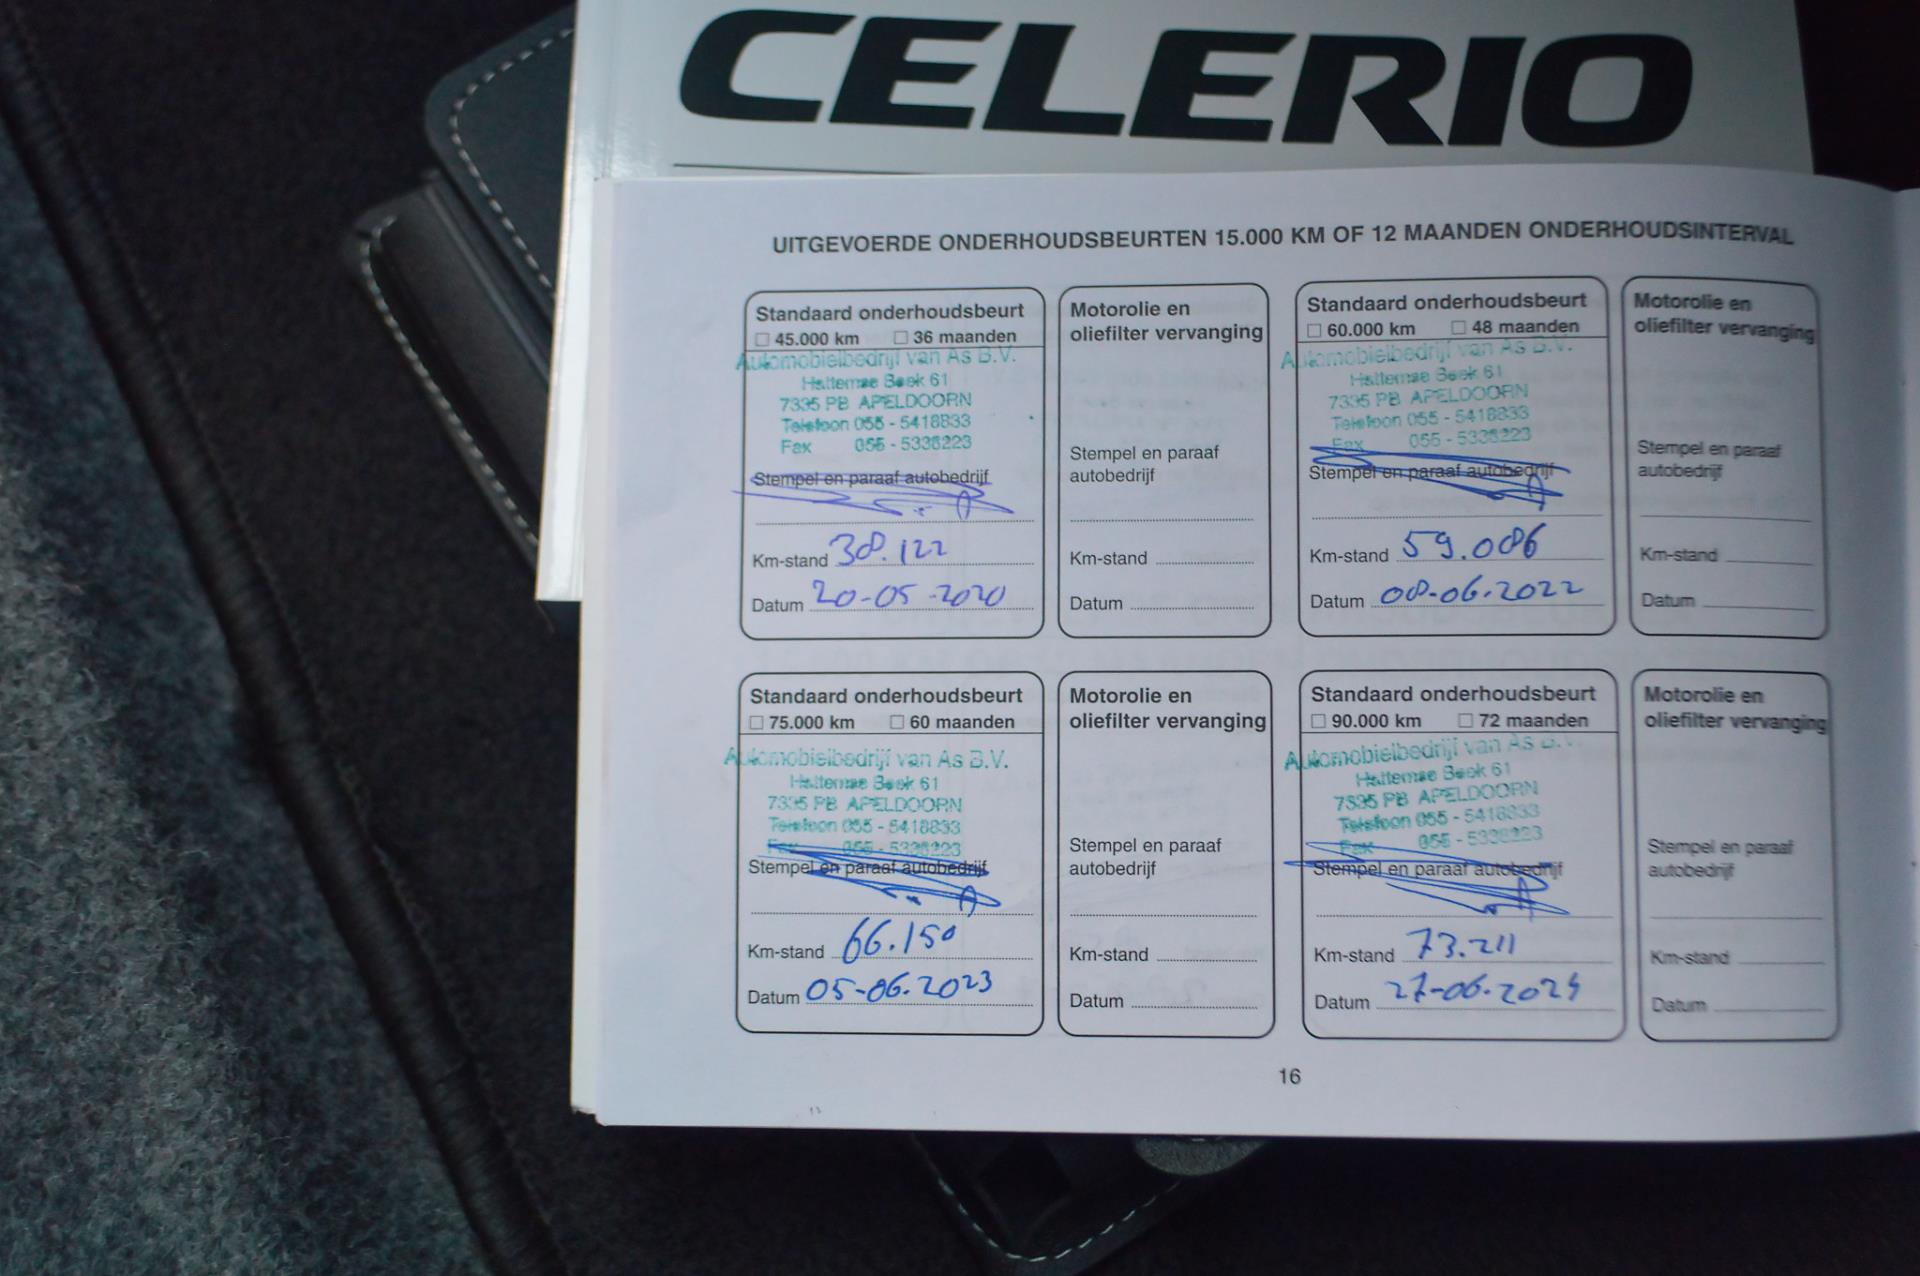 CELERIO
UITGEVOERDE ONDERHOUDSBEURTEN 15.000 KM OF 12 MAANDEN ONDERHOUDSINTERVAL
Standaard onderhoudsbeurt
☐ 45.000 km ☐ 36 maanden
Automobielbedrijf van As B.V.
Hattemse Beek 61
7335 PB APELDOORN
Telefoon 055 - 5418833
Fax 055 - 5336223
Stempel en paraaf autobedrijf
Km-stand 38.122
Datum 20-05-2020
Motorolie en
oliefilter vervanging
Stempel en paraaf
autobedrijf
Km-stand
Datum
Standaard onderhoudsbeurt
☐ 60.000 km ☐ 48 maanden
Automobielbedrijf van As B.V.
Hattemse Beek 61
7335 PB APELDOORN
Telefoon 055 - 5418833
Fax 055 - 5336223
Stempel en paraaf autobedrijf
Km-stand 59.086
Datum 08-06.2022
Motorolie en
oliefilter vervanging
Stempel en paraaf
autobedrijf
Km-stand
Datum
Standaard onderhoudsbeurt
☐ 75.000 km ☐ 60 maanden
Automobielbedrijf van As B.V.
Hattemse Beek 61
7335 PB APELDOORN
Telefoon 055 - 5418833
Fax 055 - 5336223
Stempel en paraaf autobedrijf
Km-stand 66.150
Datum 05-06.2023
Motorolie en
oliefilter vervanging
Stempel en paraaf
autobedrijf
Km-stand
Datum
Standaard onderhoudsbeurt
☐ 90.000 km ☐ 72 maanden
Automobielbedrijf van As B.V.
Hattemse Beek 61
7335 PB APELDOORN
Telefoon 055 - 5418833
Fax 055 - 5336223
Stempel en paraaf autobedrijf
Km-stand 73.211
Datum 27-06.2024
Motorolie en
oliefilter vervanging
Stempel en paraaf
autobedrijf
Km-stand
Datum
16